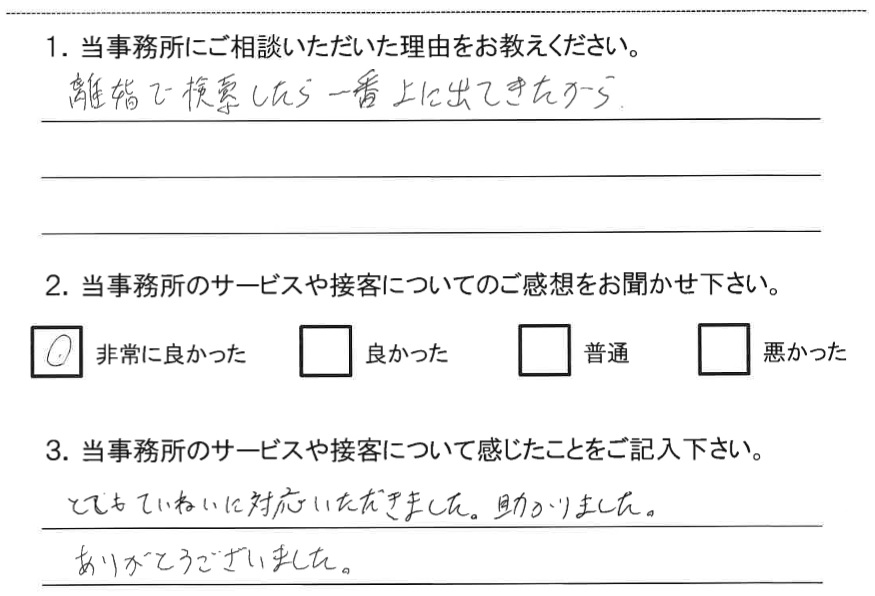 1. 当事務所にご相談いただいた理由をお教えください。
離婚で検索したら一番上に出てきたから.
2. 当事務所のサービスや接客についてのご感想をお聞かせ下さい。
非常に良かった 良かった 普通 悪かった
3. 当事務所のサービスや接客について感じたことをご記入下さい。
とてもていねいに対応いただきました。助かりました。
ありがとうございました。